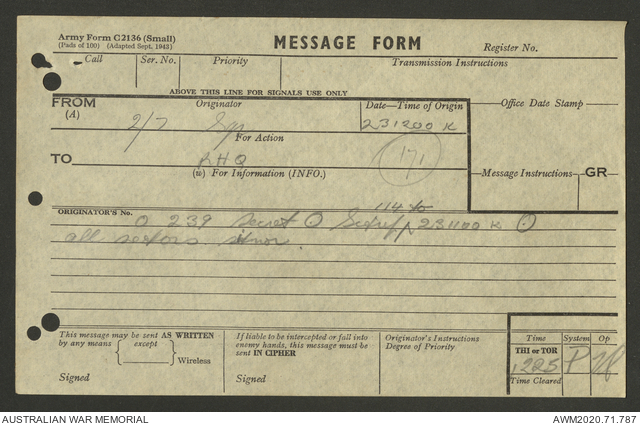 Army Form C2136 (Small)
(Pads of 100) (Adapted Sept. 1943)
MESSAGE FORM
Register No.
Call Ser. No. Priority Transmission Instructions
ABOVE THIS LINE FOR SIGNALS USE ONLY
FROM Originator Date—Time of Origin Office Date Stamp
(A)
2/7 231200 K
For Action
171
TO RHQ
(w) For Information (INFO.)
Message Instructions GR
ORIGINATOR'S No.
O 239 Secret 231100 K
all sectors
This message may be sent AS WRITTEN
by any means except
Wireless
Signed
If liable to be intercepted or fall into
enemy hands, this message must be
sent IN CIPHER
Signed
Originator's Instructions
Degree of Priority
Time System Op
THI or TOR
1225 P
Time Cleared
AUSTRALIAN WAR MEMORIAL AWM2020.71.787